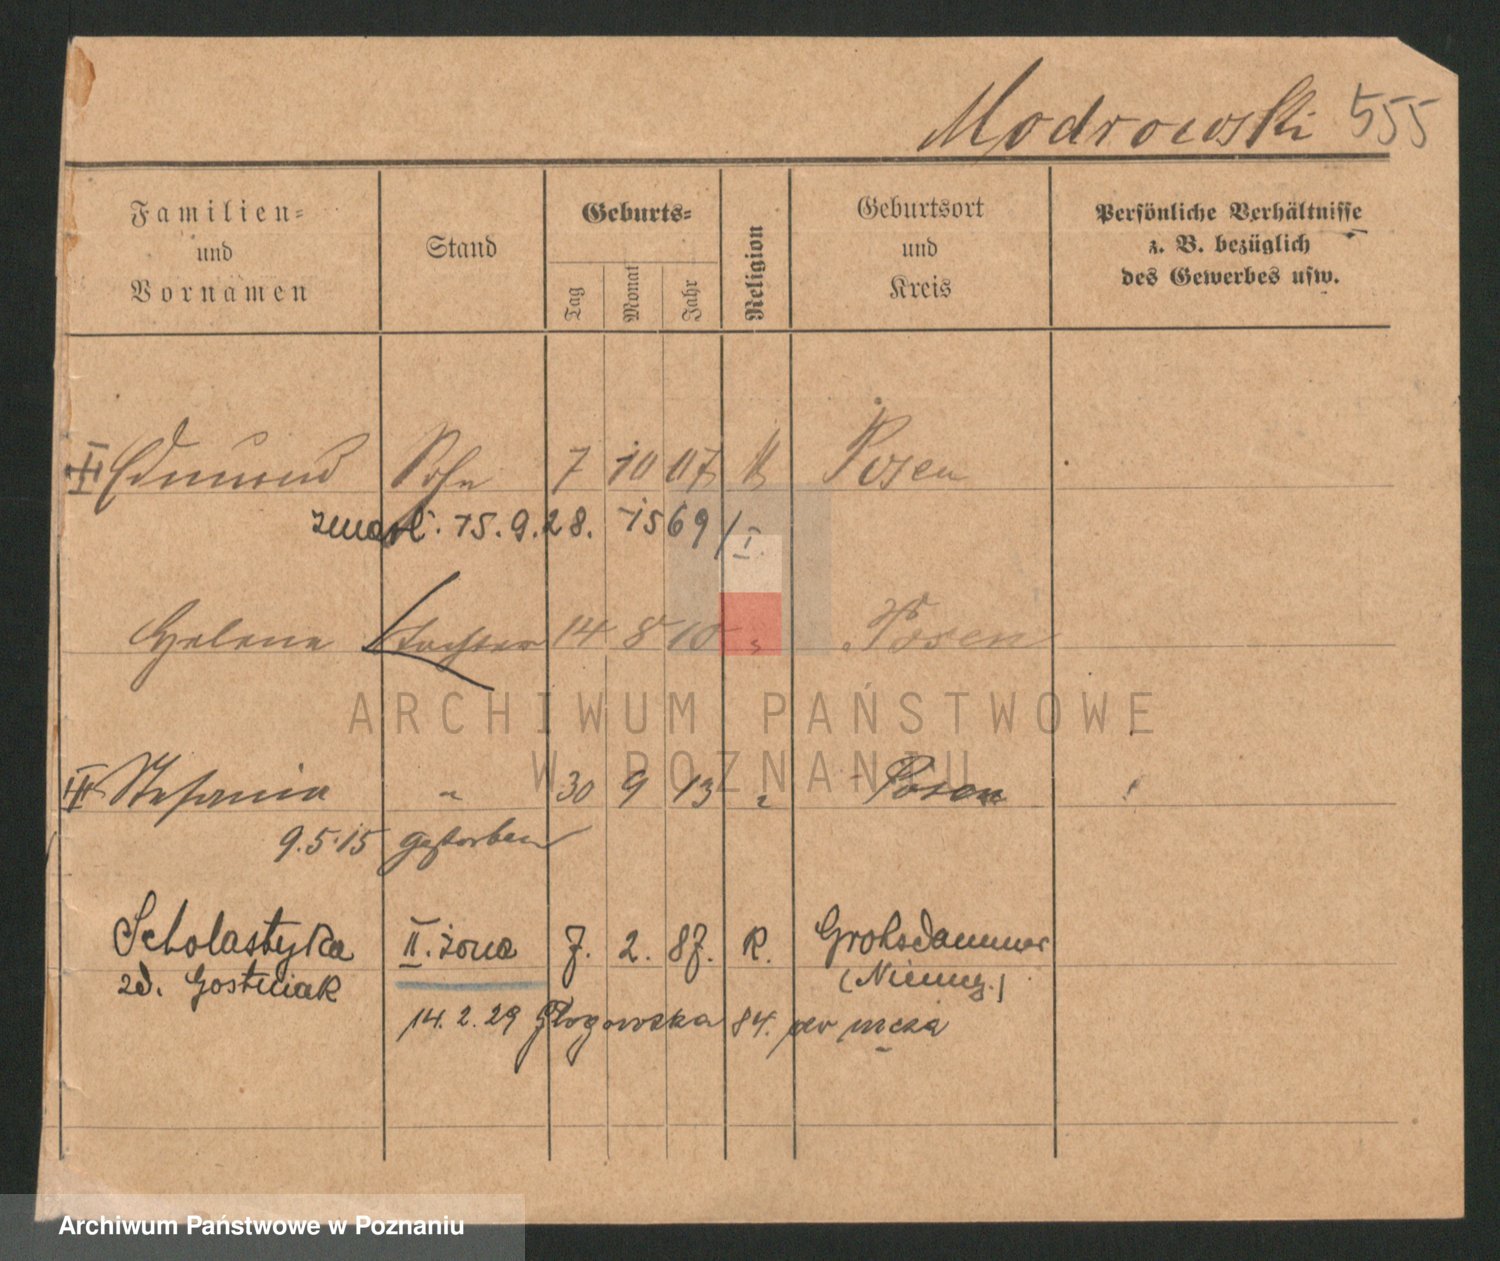 Modrowski 555
Familien= und Vornamen
Stand
Geburts=
Tag Monat Jahr
Religion
Geburtsort und Kreis
Persönliche Verhältnisse z. B. bezüglich des Gewerbes usw.
Edmund Sohn 7 10 07 Posen
zmarł. 15.9.28. 1569/I
Helene Tochter 14 8 10 " Posen
ARCHIWUM PAŃSTWOWE
W POZNANIU
Stefania " 30 9 13 " Posen
9.5.15 gestorben
Scholastyka II. żona 7. 2. 87. R. Grohsdammer
zd. Gostuiak (Niemcy.)
14.2.29 Głogowska 84. do męża
Archiwum Państwowe w Poznaniu